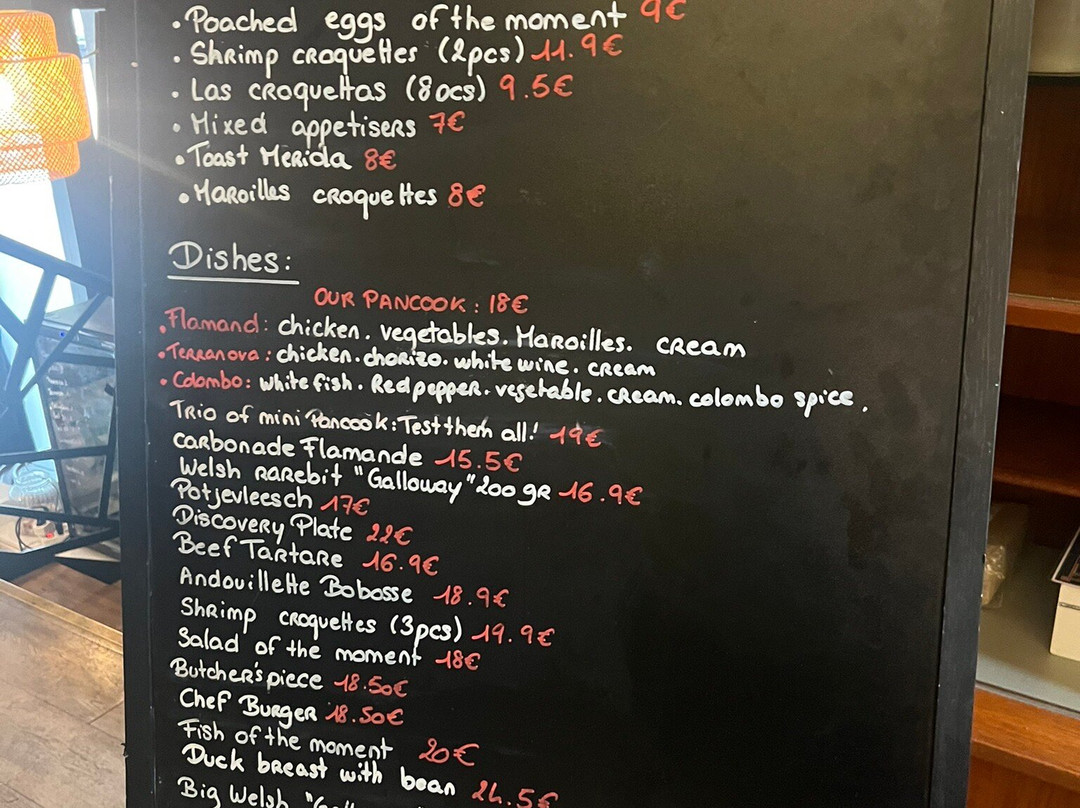 • Poached eggs of the moment 9€
• Shrimp croquettes (2pcs) 11.9€
• Las croquettas (8ocs) 9.5€
• Mixed appetisers 7€
• Toast Merida 8€
• Maroilles croquettes 8€
Dishes:
OUR PANCOOK : 18€
• Flamand : chicken. vegetables. Maroilles. cream
• Terranova : chicken. chorizo. white wine. cream
• Colombo : white fish. Red pepper. vegetable. cream. colombo spice.
Trio of mini Pancook : Test them all! 19€
carbonade Flamande 15.5€
Welsh rarebit "Galloway" 200 gr 16.9€
Potjevleesch 17€
Discovery Plate 22€
Beef Tartare 16.9€
Andouillette Bobosse 18.9€
Shrimp croquettes (3pcs) 19.9€
Salad of the moment 18€
Butcher's piece 18.50€
Chef Burger 18.50€
Fish of the moment 20€
Duck breast with bean 24.5€
Big Welsh